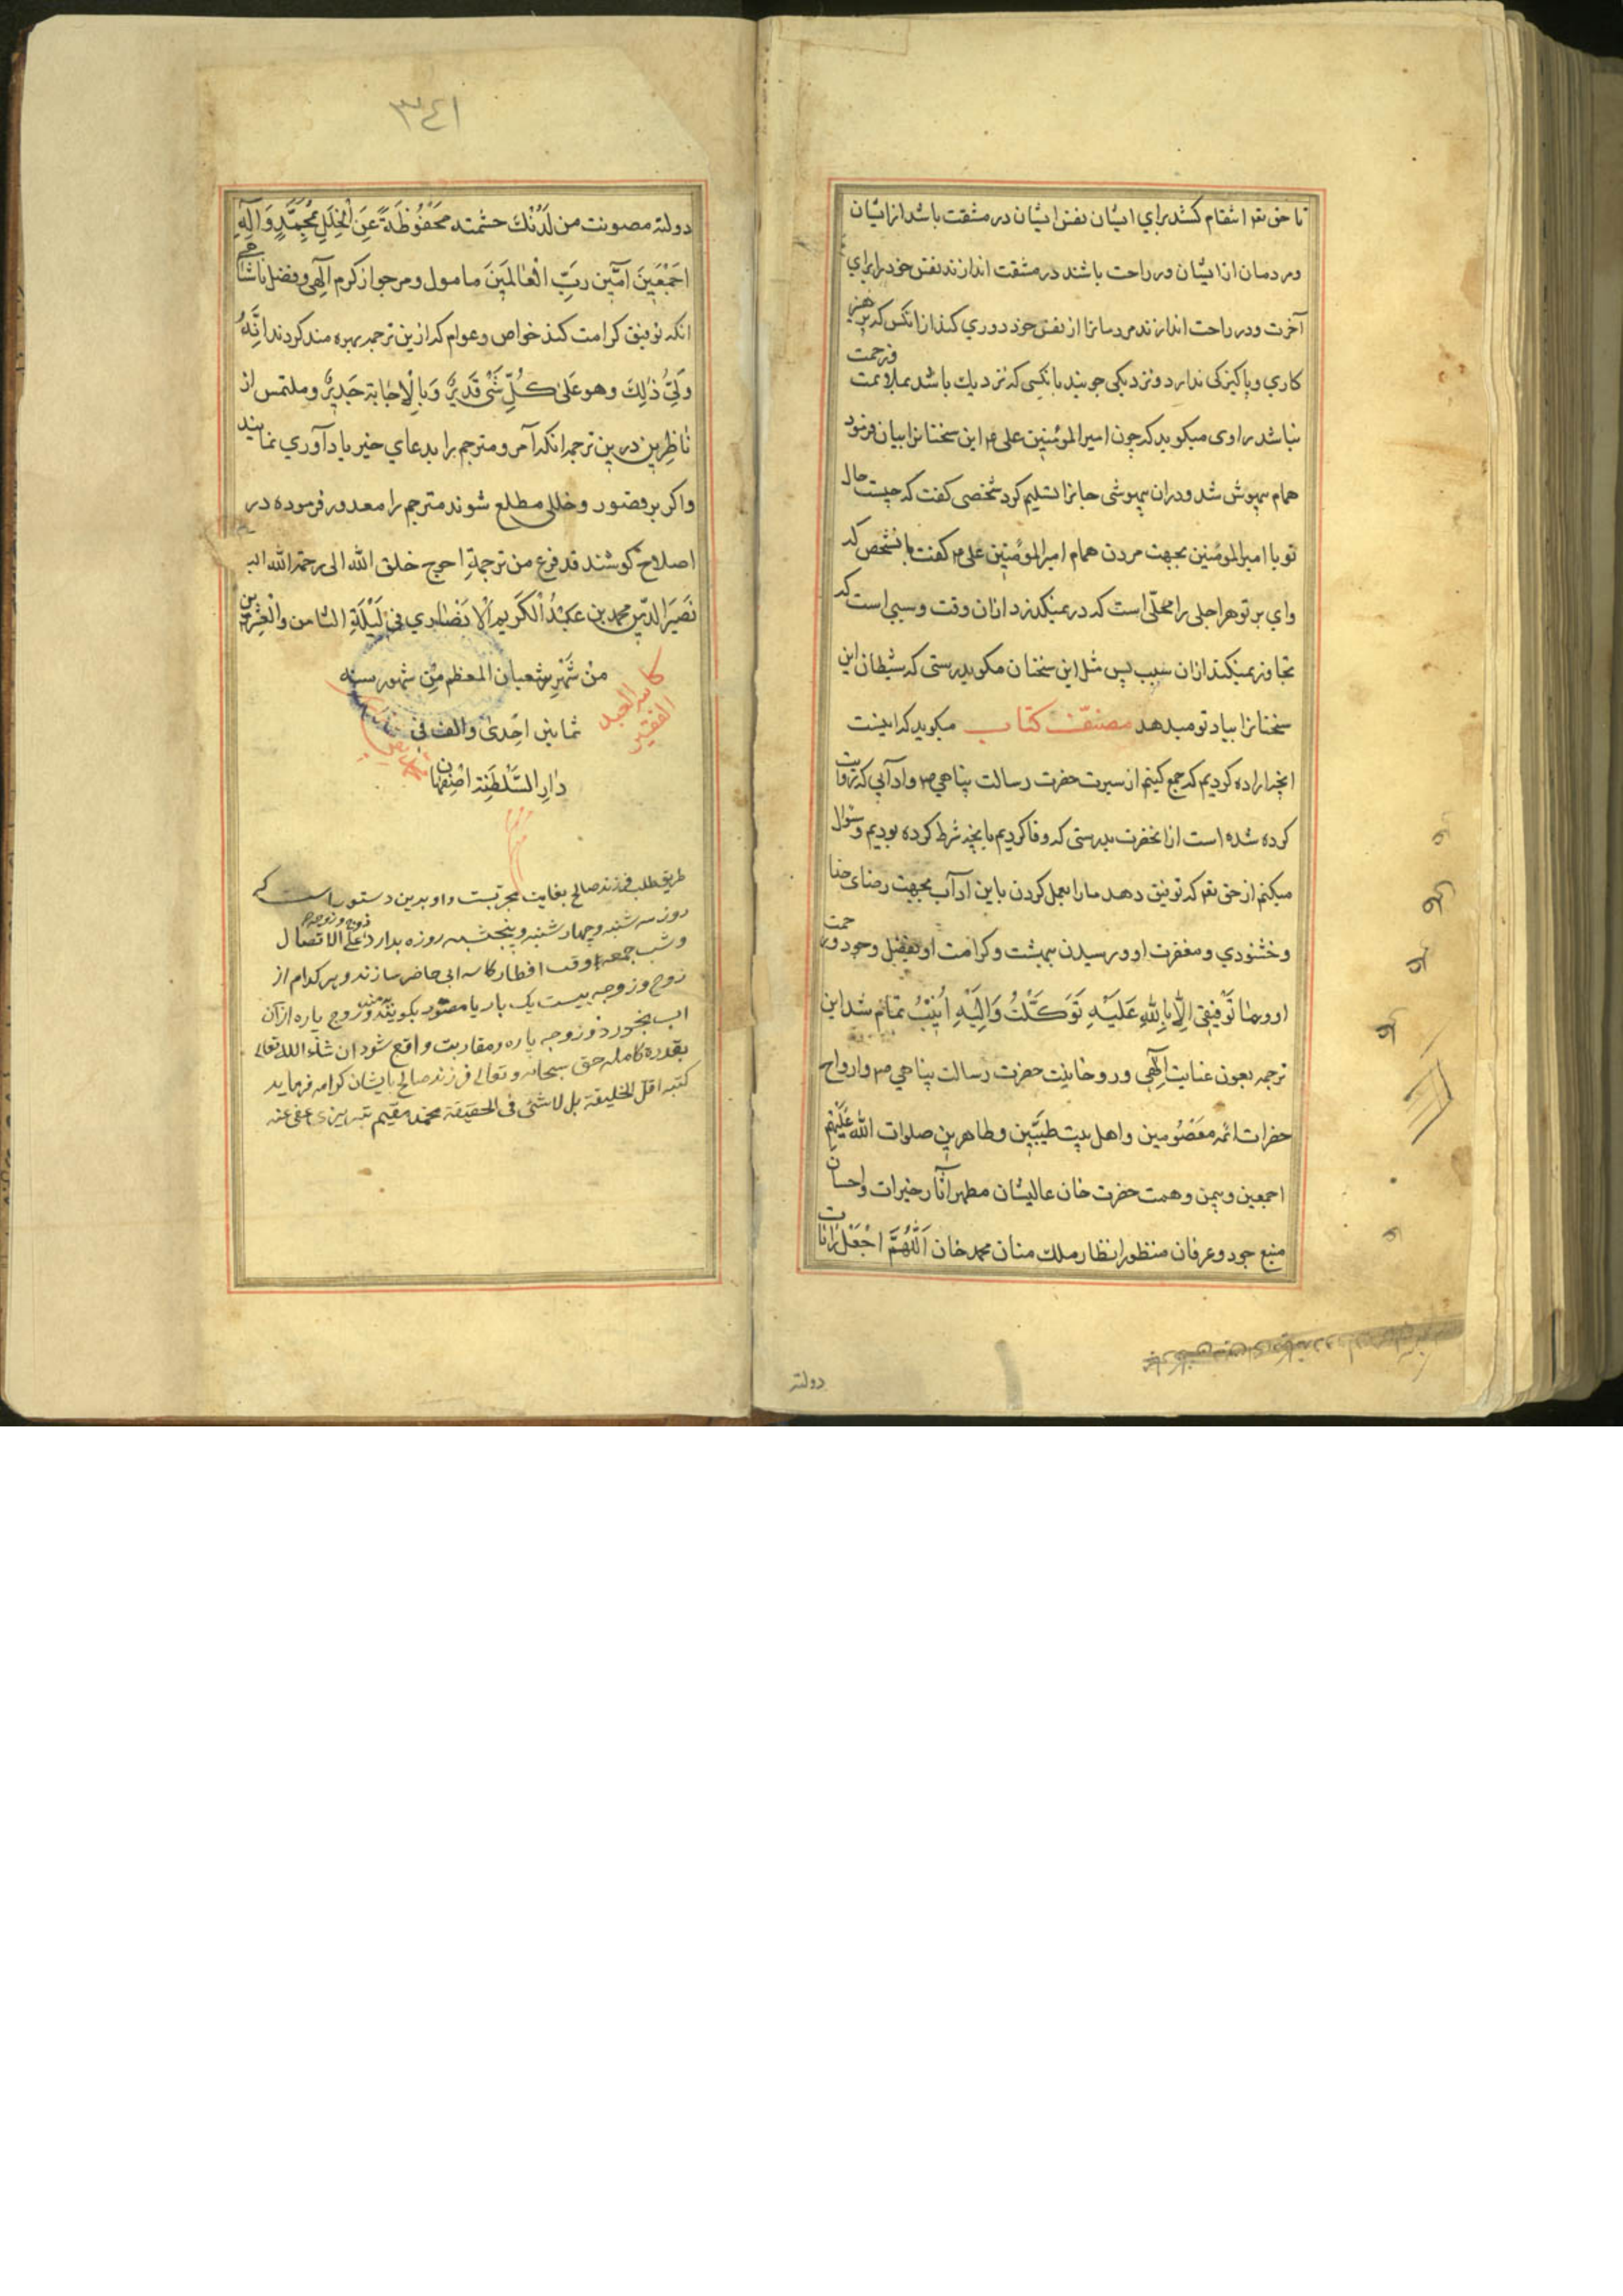 تا حق تعه انتقام کشد برای ایشان نفس ایشان در مشقت باشد از ایشان
و مردمان از ایشان در راحت باشند در مشقت اندازند نفس خود را برای
آخرت و در راحت اندازند مردمانرا از نفس خود دوری کنند از انکس که پرهیز
کاری و پاکیزکی ندارد و نزدیکی جویند بانکسی که نزدیک باشد بملایمت و رحمت
نباشد راوی میکوید که چون امیر المؤمنین علی ع م این سخنانرا بیان فرمود
همام بیهوش شد و دران بیهوشی جانرا تسلیم کرد شخصی کفت که چیست حال
تو یا امیر المومنین بجهت مردن همام امیر المؤمنین علی ع م کفت بانشخص که
وای بر تو هر اجلی را محلّی است که در نمیکذرد ازان وقت و سببی است که
تجاوز نمیکند ازان سبب پس مثل این سخنان مکو بدرستی که شیطان این
سخنانرا بیاد تو میدهد مصنّف کتاب میکوید که اینست
انچه اراده کردیم که جمع کنیم از سیرت حضرت رسالت پناهی ص م و آدابی که روایت
کرده شده است از انحضرت بدرستی که وفا کردیم بانچه شرط کرده بودیم و سئوال
میکنم از حق تعه که توفیق دهد ما را بعمل کردن باین آداب بجهت رضای خدا
و خشنودی و مغفرت او و رسیدن ببهشت و کرامت او بفضل وجود و رحمت
او و ما توفیقی الّا بالله علیه توکّلت و الیه انیب تمام شد این
ترجمه بعون عنایت الهی و روحانیت حضرت رسالت پناهی ص م و ارواح
حضرات ائمه معصومین و اهل بیت طیّبین و طاهرین صلوات الله علیهم
اجمعین و بیمن و همت حضرت خان عالیشان مظهر آثار خیرات و احسان
منبع جود و عرفان منظور انظار ملک منان محمد خان اللّهمّ اجعل رایات
دولته
٣٤١
دولته مصونت من لدنک حشمته محفوظة عن الخلل بمحمّد و آله
اجمعین آمین ربّ العالمین مامول و مرجو از کرم الهی و فضل
انکه توفیق کرامت کند خواص و عوام که ازین ترجمه بهره مند کردند انّه
ولیّ ذلک و هو علی کلّ شی قدیر و بالاجابة جدیر و ملتمس از
ناظرین درین ترجمه انکه آمر و مترجم را بدعای خیر یادآوری نمایند
و اکر بر قصور و خللی مطلع شوند مترجم را معدور فرموده در
اصلاح کوشند قد فرغ من ترجمة احوج خلق الله الی رحمة الله
نصیر الدّین محمد بن عبد الکریم الانصاری فی لیلة الثامن و العشرین
من شهر شعبان المعظم من شهور سنه
ثمانین احدی و الف فی
دار السّلطنه اصفهان
کاتبه العبد
الفقیر
طریق طلب فرزند صالح بغایت مجربست و او بدین دستور است که
روز سه شنبه و چهارشنبه و پنجشنبه روزه بدارد زوج و زوجه علی الاتصال
و شب جمعه وقت افطار کاسه ابی حاضر سازند و هر کدام از
زوج و زوجه بیست یک بار یا مصور بکویند و زوج پاره از آن
اب بخورد و زوجه پاره و مقاربت واقع شود ان شاء الله تعالی
بقدره کامله حق سبحانه و تعالی فرزند صالح بایشان کرامه فرماید
کتبه اقل الخلیقة بل لاشئ فی الحقیقة محمد مقیم تبریزی عفی عنه